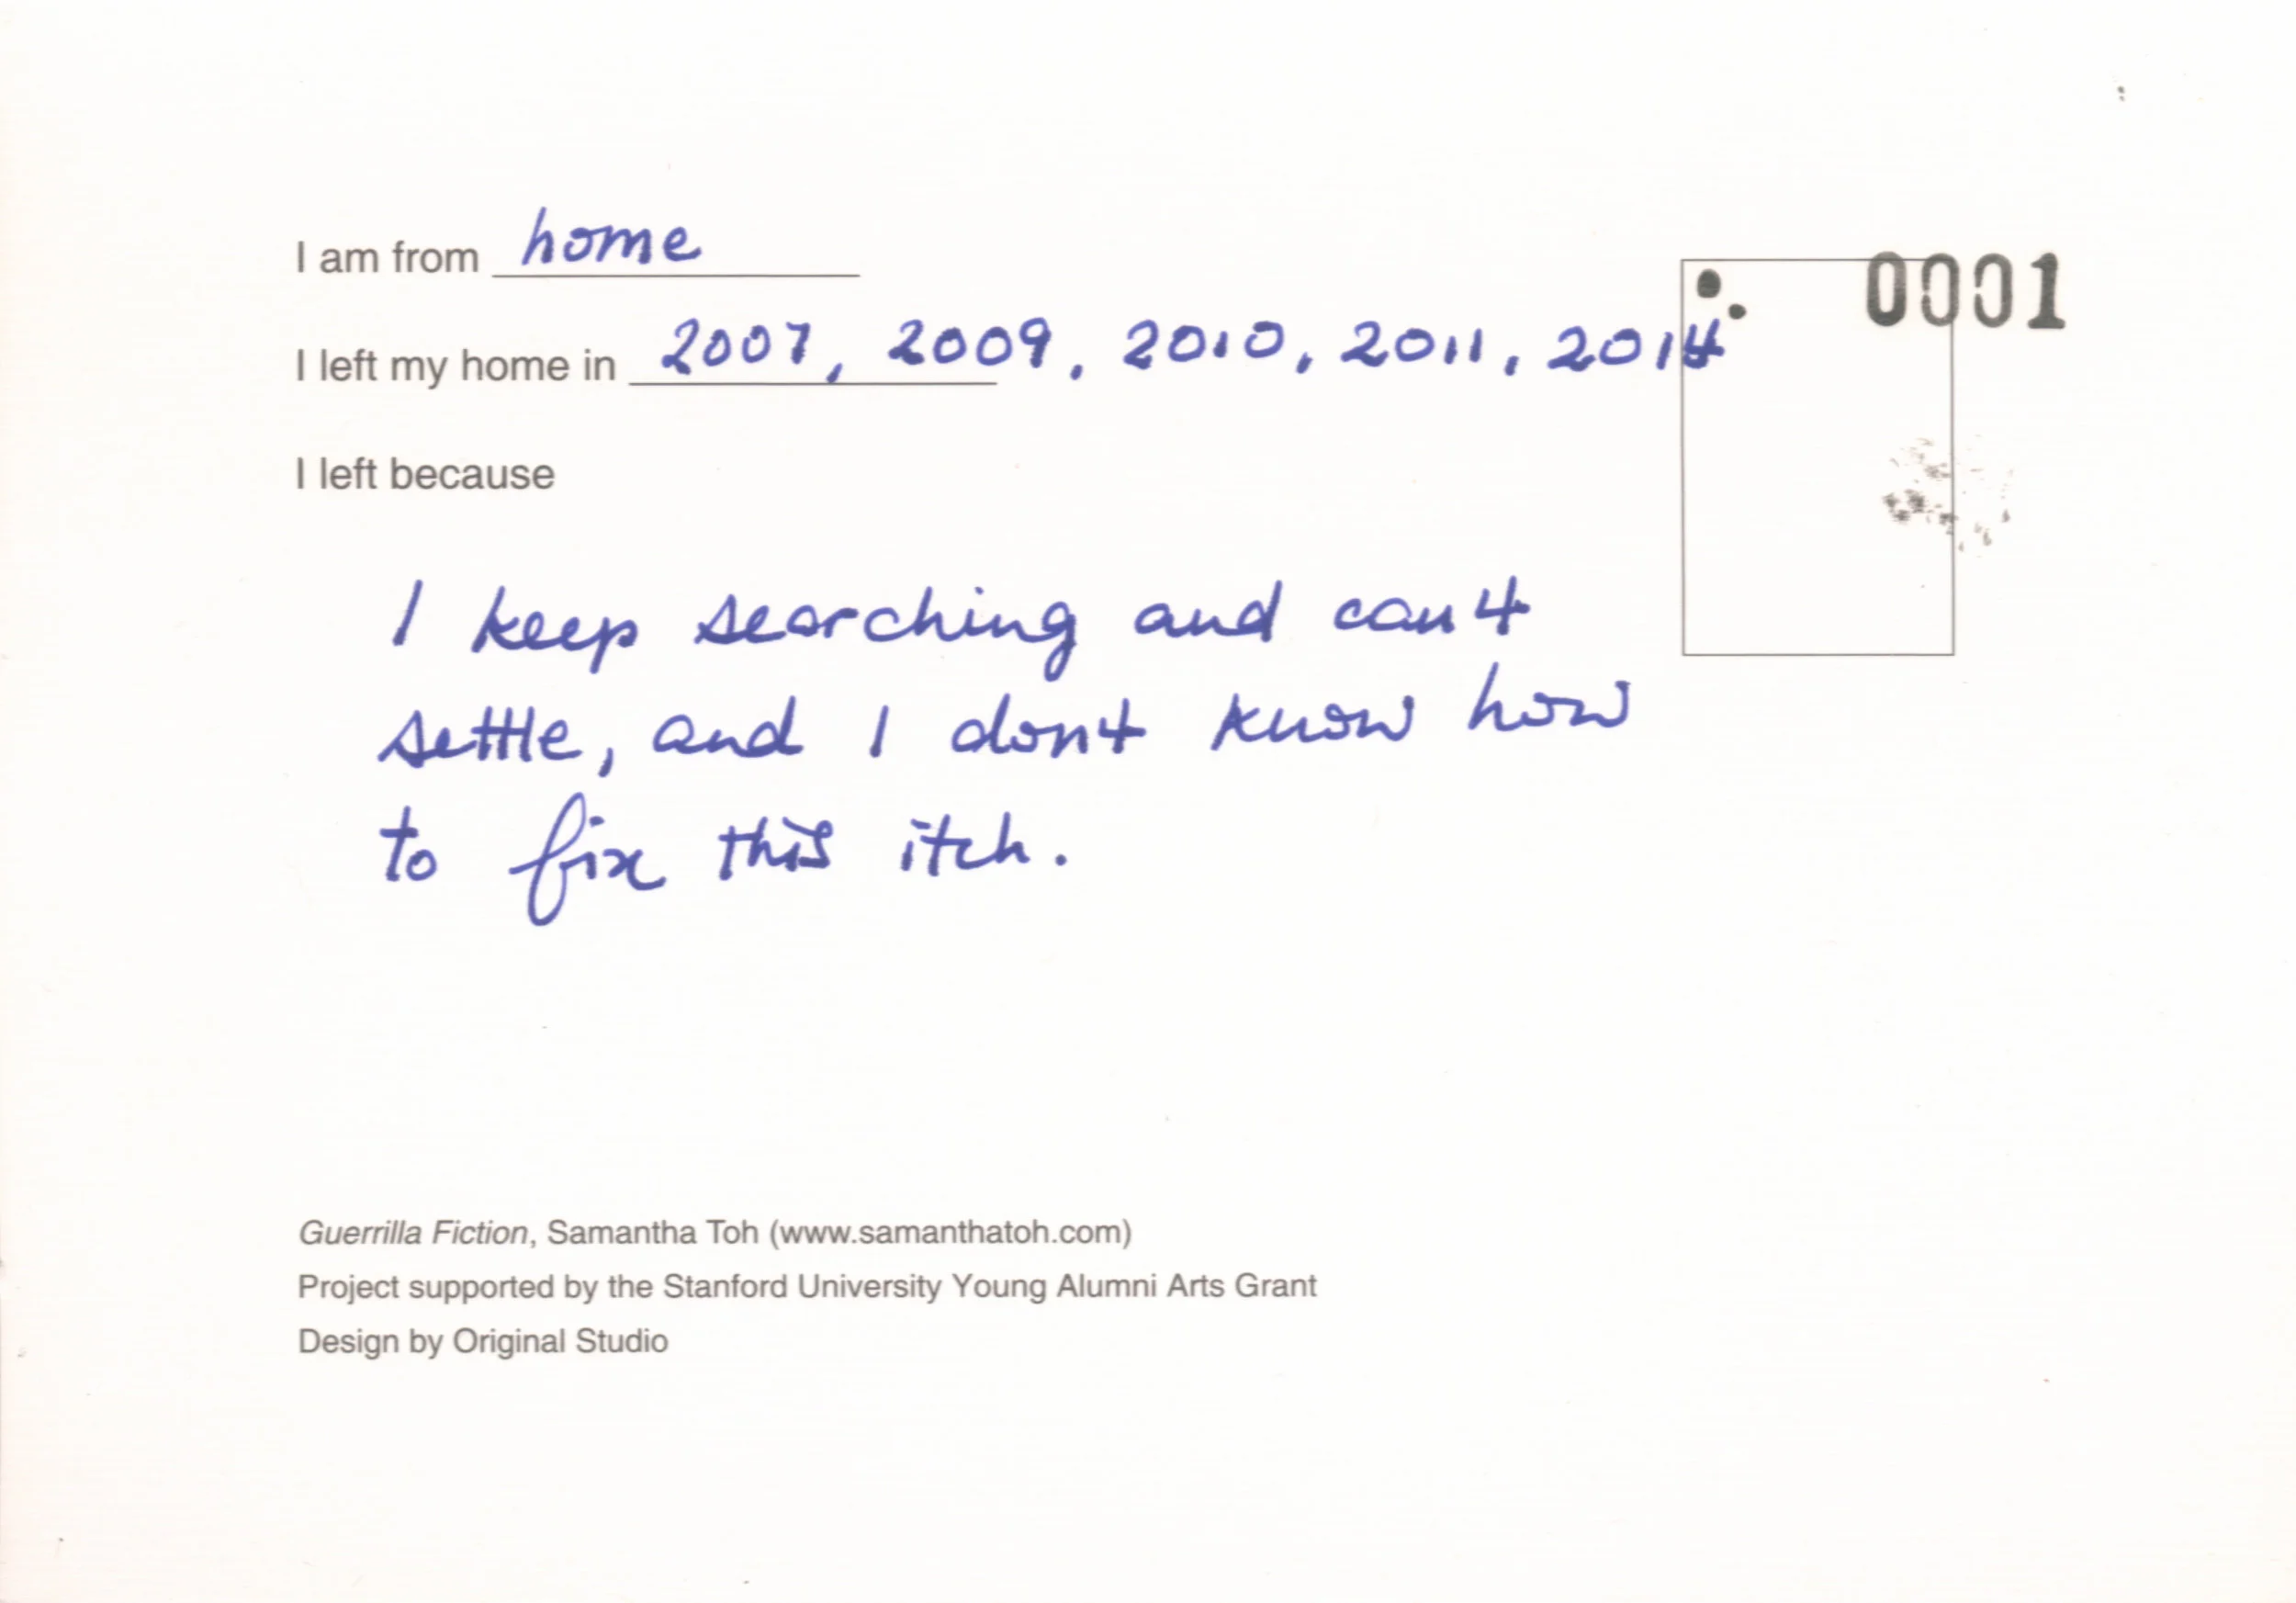 I am from home
0001
I left my home in 2007, 2009, 2010, 2011, 2014
I left because
I keep searching and cant
settle, and I dont know how
to fix this itch.
Guerrilla Fiction, Samantha Toh (www.samanthatoh.com)
Project supported by the Stanford University Young Alumni Arts Grant
Design by Original Studio